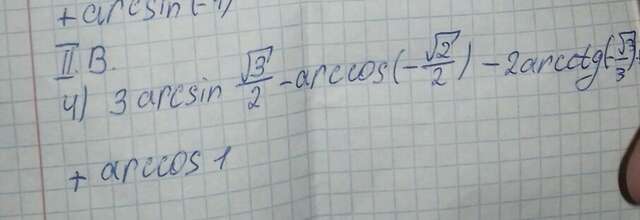 + arcsin(-1)
II. В.
4) 3 arcsin √3/2 - arccos(-√2/2) - 2arcctg(-√3/3)
+ arccos 1